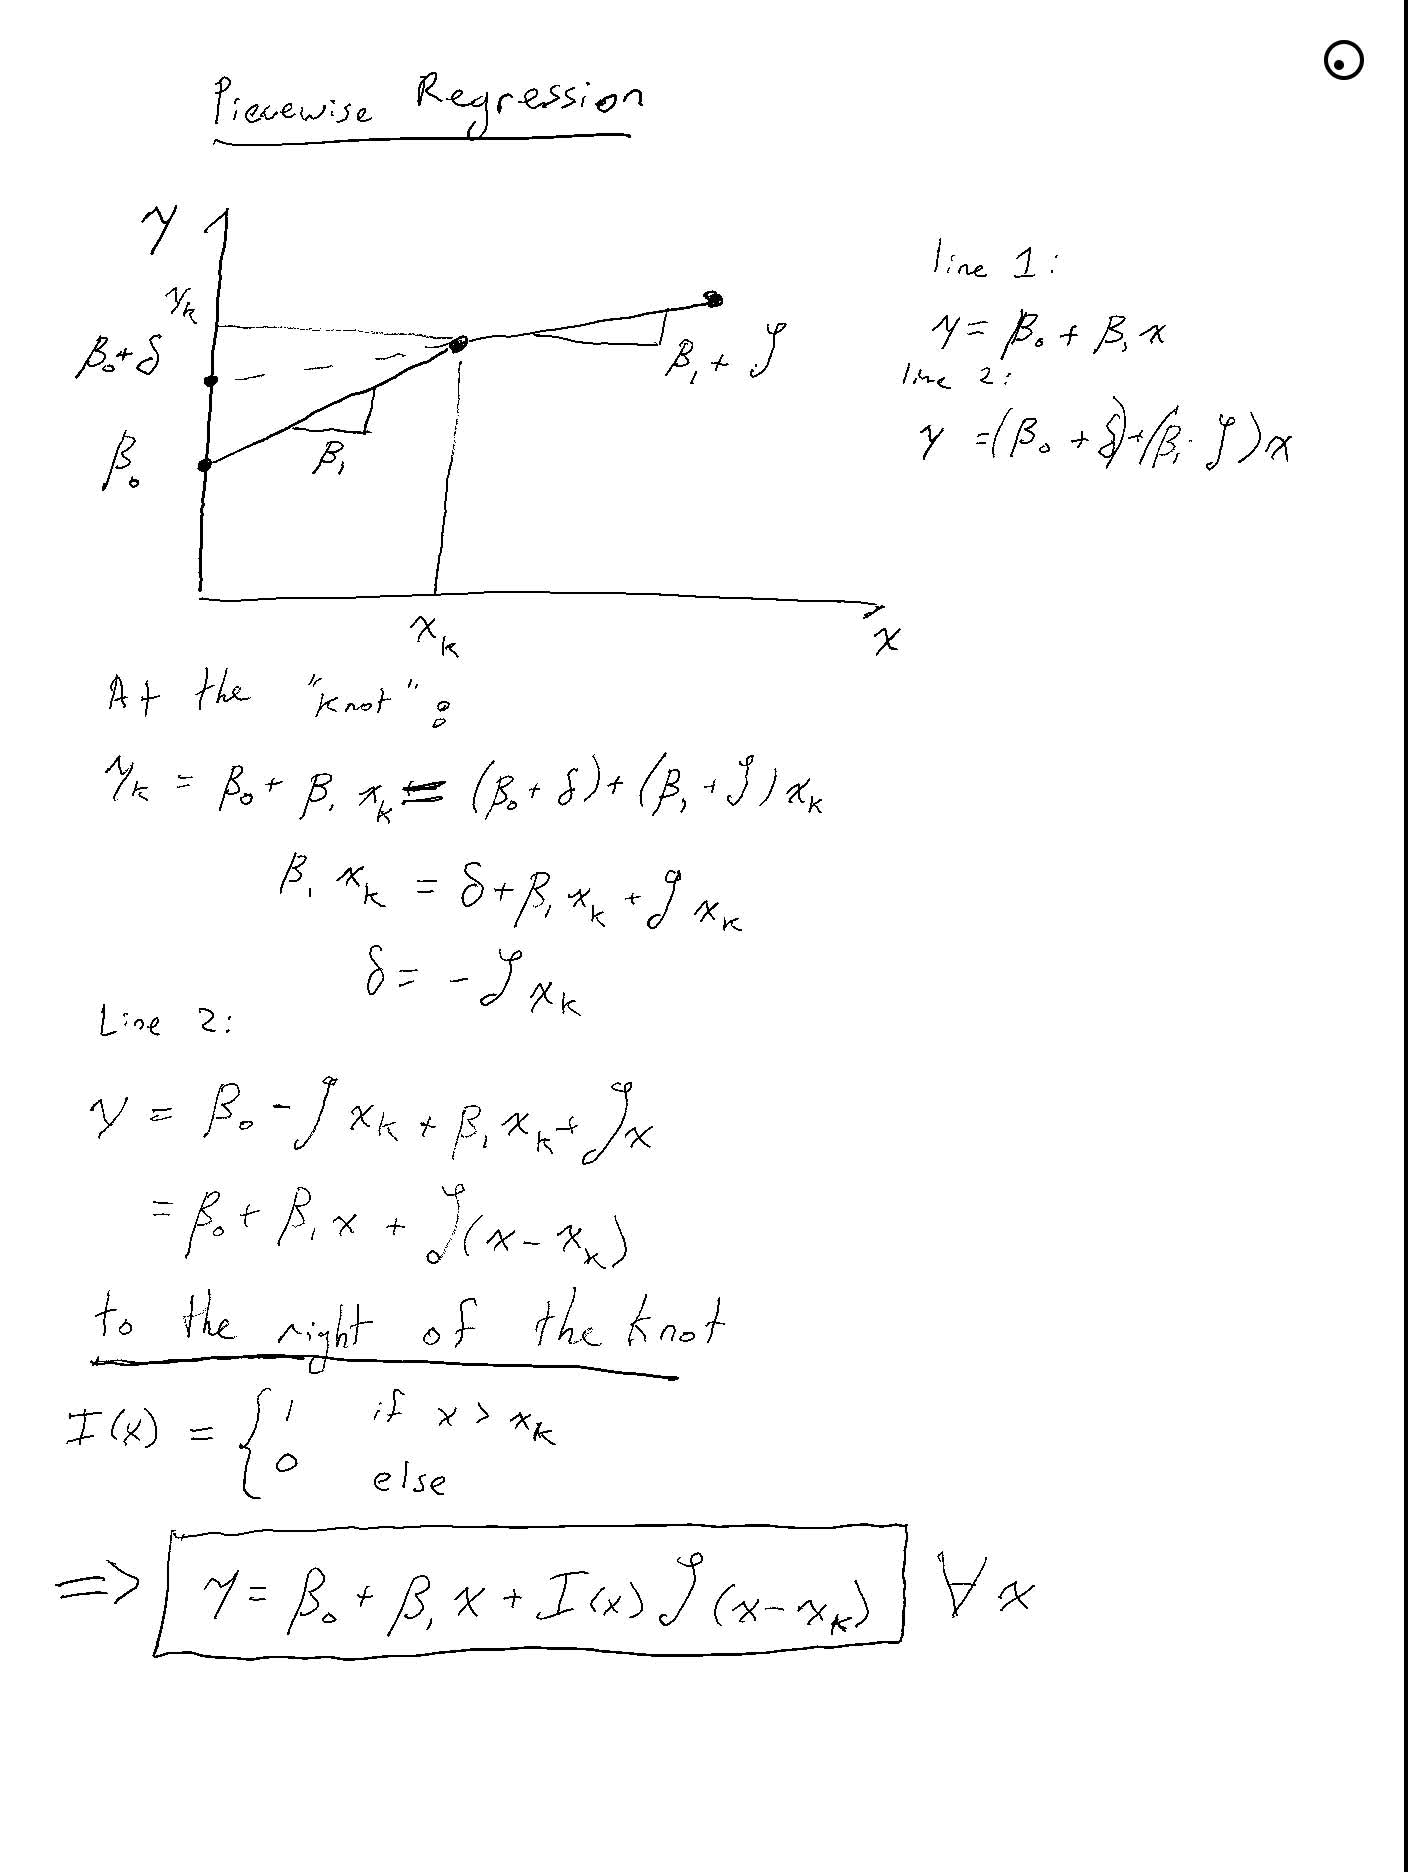 Piecewise Regression
y
y_k
β₀+δ
β₀
β₁
β₁ + ζ
x_k
x
line 1:
y = β₀ + β₁ x
line 2:
y = (β₀ + δ) + (β₁ · ζ) x
At the "knot":
y_k = β₀ + β₁ x_k = (β₀ + δ) + (β₁ + ζ) x_k
β₁ x_k = δ + β₁ x_k + ζ x_k
δ = - ζ x_k
Line 2:
y = β₀ - ζ x_k + β₁ x_k + ζ x
= β₀ + β₁ x + ζ (x - x_k)
to the right of the knot
I(x) = { 1 if x > x_k
0 else
=> y = β₀ + β₁ x + I(x) ζ (x - x_k) ∀ x